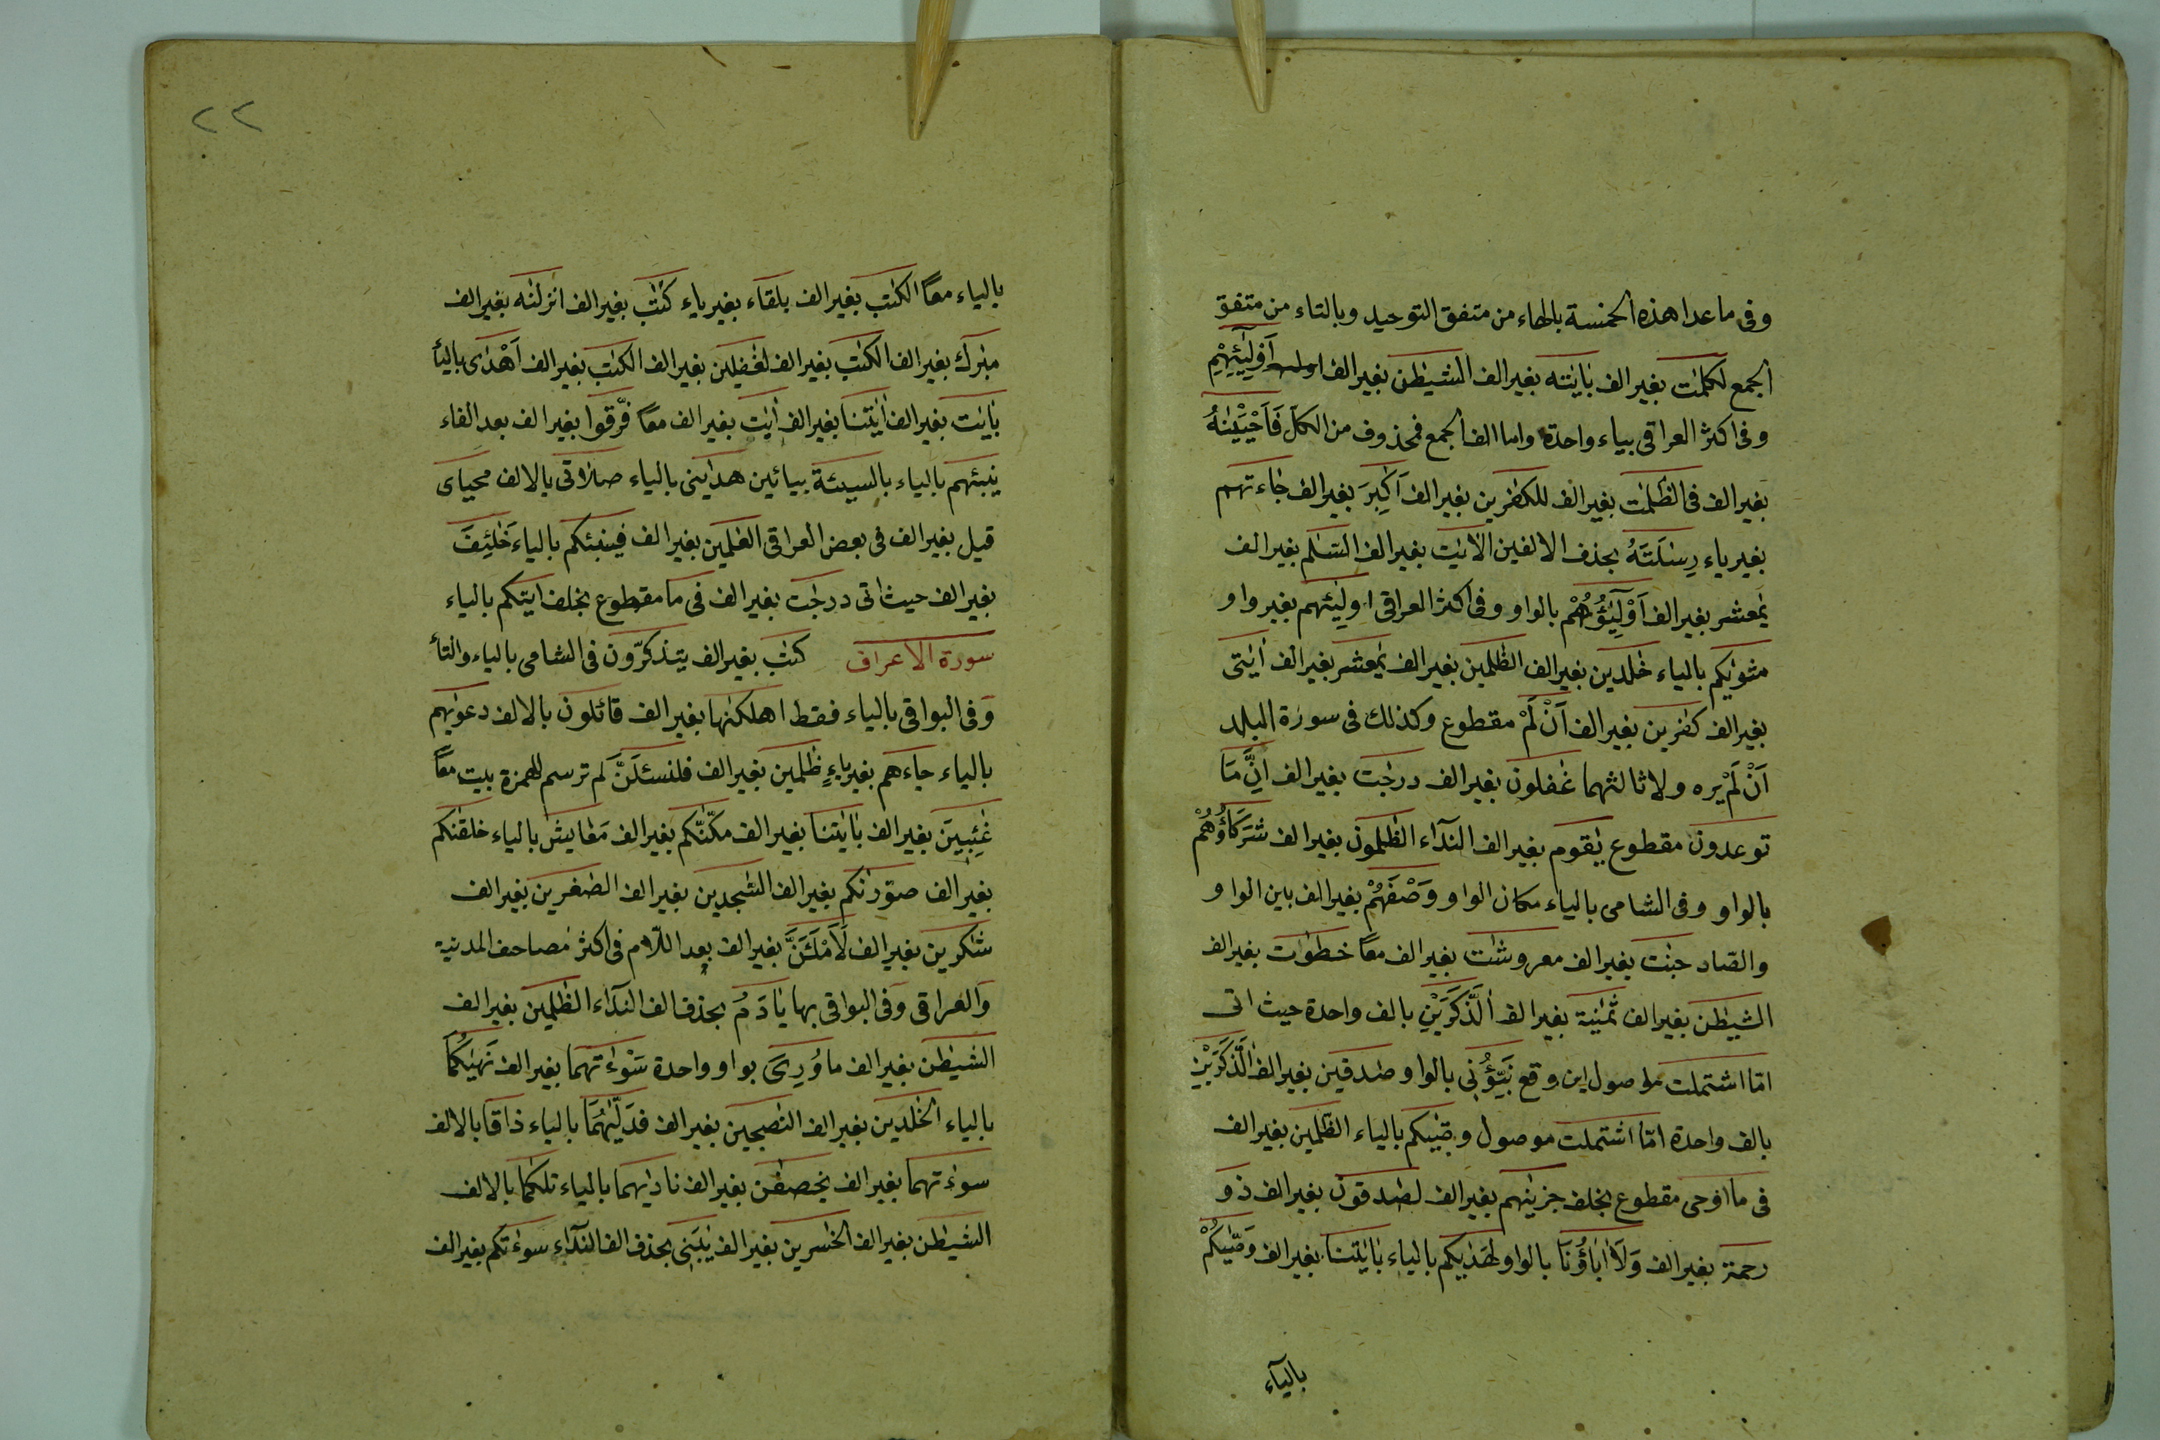 وفى ما عدا هذه الخمسة بالهاء من متفق التوحيد وبالتاء من متفق
الجمع لكلمٰت بغير الف بٰايٰته بغير الف الشيطٰن بغير الف اَوْلِيٰٓئِهِمْ
وفى اكثر العراقى بياء واحدة واما الف الجمع فمحذوف من الكل فَاَحْيَيْنٰهُ
بغير الف فى الظلمٰت بغير الف للكٰفرين بغير الف اَكٰبِرَ بغير الف جٰاءتهم
بغير ياء رِسٰلَتَهُ بحذف الالفين الاٰيٰت بغير الف السّلٰم بغير الف
يٰمعشر بغير الف اَوْلِيٰٓؤُهُمْ بالواو وفى اكثر العراقى اوليٰئهم بغير واو
مثويٰكم بالياء خٰلدين بغير الف الظٰلمين بغير الف يٰمعشر بغير الف اٰيٰتى
بغير الف كٰفرين بغير الف اَنْ لَمْ مقطوع وكذلك فى سورة البلد
اَنْ لَمْ يره ولا ثالثهما غٰفلون بغير الف درجٰت بغير الف اِنَّ مَا
توعدون مقطوع يٰقوم بغير الف النّدآء الظٰلمون بغير الف شُرَكَاؤُهُمْ
بالواو وفى الشامى بالياء مكان الواو وَصْفَهُمْ بغير الف بين الواو
والصّاد جنٰت بغير الف معروشٰت بغير الف معًا خطوٰت بغير الف
الشيطٰن بغير الف ثمٰنية بغير الف اٰلذَّكَرَيْنِ بالف واحدة حيث اتى
امّا اشتملت موصول اين وقع نَبِّؤُنِى بالواو صٰدقين بغير الف اٰلذَّكَرَيْنِ
بالف واحدة امّا اشتملت موصول وصّيٰكم بالياء الظّٰلمين بغير الف
فى ما اوحى مقطوع بخلف جزينٰهم بغير الف لصٰدقون بغير الف ذو
رحمة بغير الف وَلَا اٰبَاؤُنَا بالواو لهَدٰيكم بالياء بٰايٰتنا بغير الف وَصّٰيكُمْ
بالياء
٢٢
بالياء معًا الكتٰب بغير الف بلقاء بغير ياء كتٰبٌ بغير الف انزلنٰه بغير الف
مبٰرك بغير الف الكتٰب بغير الف لغٰفلين بغير الف الكتٰب بغير الف اَهْدٰى بالياء
بٰايٰت بغير الف اٰيٰتنا بغير الف اٰيٰت بغير الف معًا فرّقوا بغير الف بعد الفاء
ينبئهم بالياء بالسيئة بيائين هدٰينى بالياء صلاتى بالالف محياى
قيل بغير الف فى بعض العراقى العٰلمين بغير الف فينبئكم بالياء خَلٰئِفَ
بغير الف حيث اتى درجٰت بغير الف فى ما مقطوع بخلف اٰتيٰكم بالياء
سورة الاعراف كتٰب بغير الف يتذكّرون فى الشامى بالياء والتاء
وفى البواقى بالياء فقط اهلكنٰها بغير الف قائلون بالالف دعويٰهم
بالياء جاءهم بغير ياءٍ ظٰلمين بغير الف فلنسئلَنَّ لم ترسم للهمزة بيت معًا
غٰئِبِينَ بغير الف بٰايٰتنا بغير الف مكّنّٰكم بغير الف مَعَايش بالياء خلقنٰكم
بغير الف صوّرنٰكم بغير الف السّٰجدين بغير الف الصٰغرين بغير الف
شٰكرين بغير الف لَاَمْلَئَنَّ بغير الف بعد اللّام فى اكثر مصاحف المدنية
والعراقى وفى البواقى بها يٰادَمُ بحذف الف النّدآء الظٰلمين بغير الف
الشيطٰن بغير الف ما وُرِىَ بواو واحدة سَوْءٰتهما بغير الف نَهٰيكُمَا
بالياء الخٰلدين بغير الف النّٰصحين بغير الف فدَلّٰيهُمَا بالياء ذاقا بالالف
سوءٰتهما بغير الف يخصفٰن بغير الف نادٰيهما بالياء تلكما بالالف
الشيطٰن بغير الف الخٰسرين بغير الف يٰبَنِى بحذف الف النّدآء سوءٰتكم بغير الف